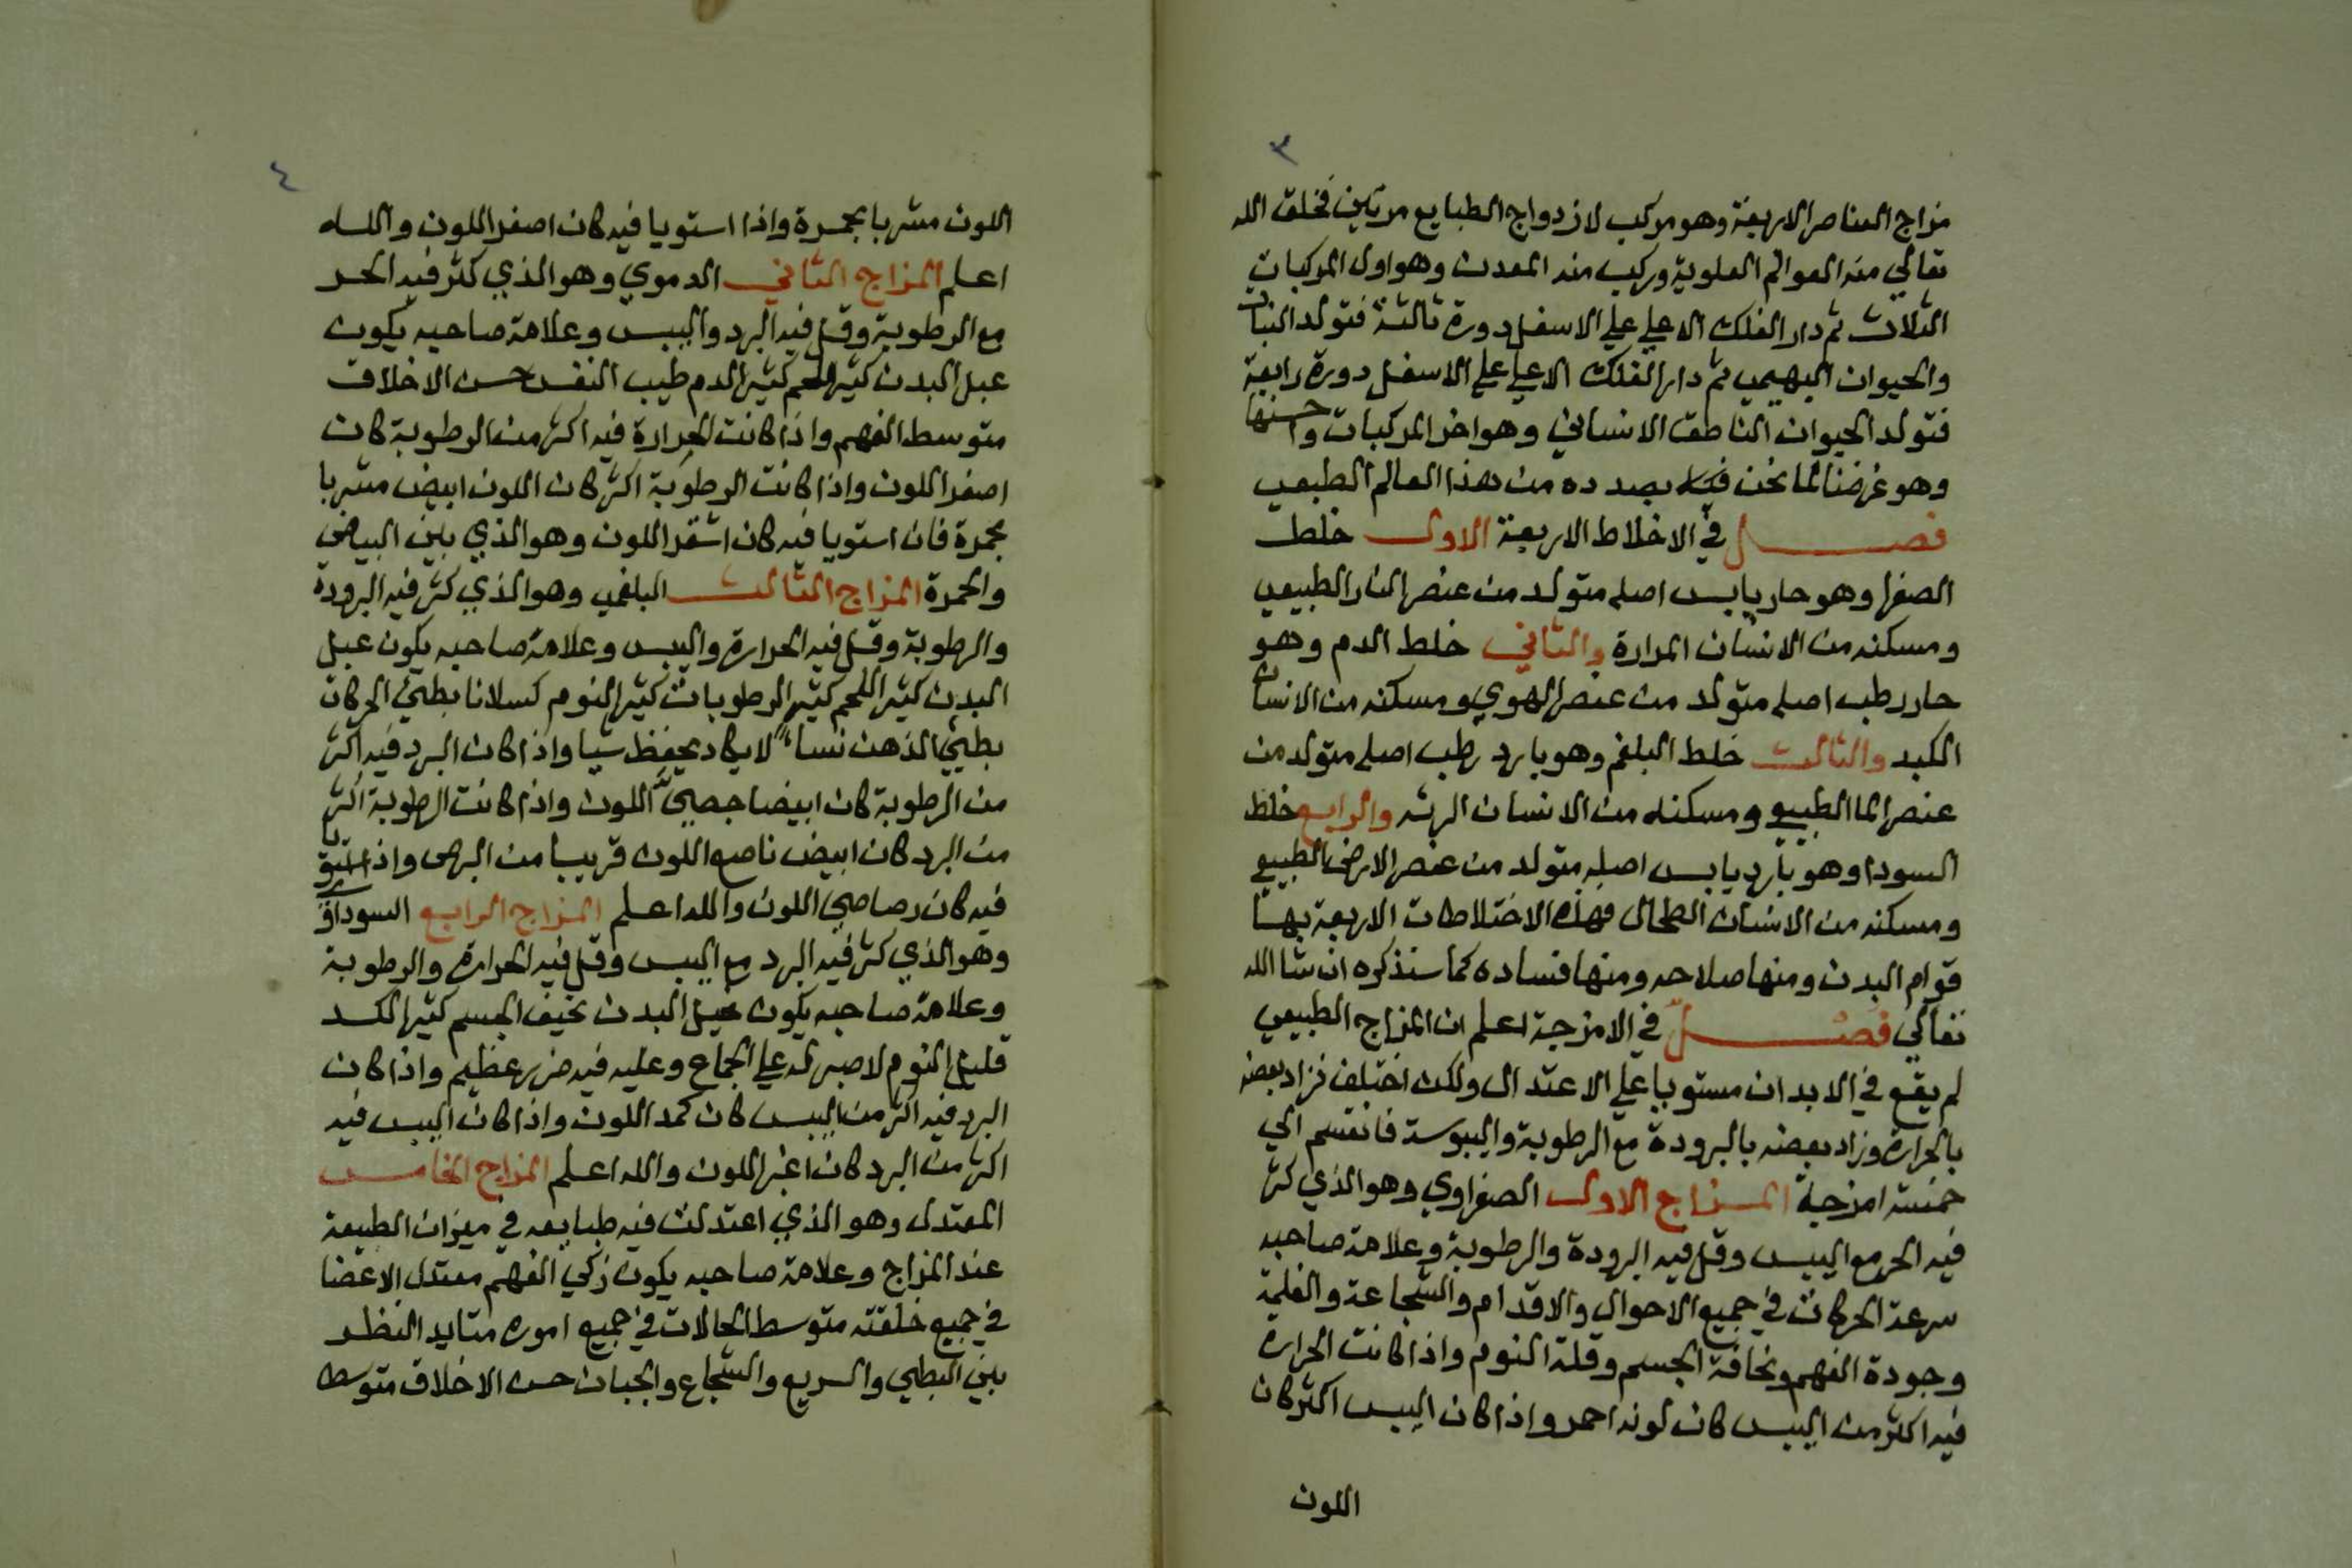 ٣
مزاج العناصر الاربعة وهو مركب لازدواج الطبايع مرتين فخلق الله
تعالي منه العوالم العلوية وركب منه المعدن وهو اول المركبات
الثلاث ثم دار الفلك الاعلي علي الاسفل دورة ثالثة فتولد النبات
والحيوان البهيمي ثم دار الفلك الاعلي علي الاسفل دورة رابعة
فتولد الحيوان الناطق الانساني وهو اخر المركبات واحسنها
وهو غرضنا لما نحن بصدده من هذا العالم الطبيعي
فصل في الاخلاط الاربعة الاول خلط
الصفرا وهو حار يابس اصله متولد من عنصر النار الطبيعي
ومسكنه من الانسان المرارة والثاني خلط الدم وهو
حار رطب اصله متولد من عنصر الهوي ومسكنه من الانسان
الكبد والثالث خلط البلغم وهو بارد رطب اصله متولد من
عنصر الما الطبيعي ومسكنه من الانسان الريه والرابع خلط
السودا وهو بارد يابس اصله متولد من عنصر الارض الطبيعي
ومسكنه من الانسان الطحال فهذه الاختلاطات الاربعة بها
قوام البدن ومنها صلاحه ومنها فساده كما سنذكره ان شا الله
تعالي فصل في الامزجة اعلم ان المزاج الطبيعي
لم يقع في الابدان مستويا علي الاعتدال ولكن اختلف فزاد بعضه
بالحرارة وزاد بعضه بالبرودة مع الرطوبة واليبوسة فانقسم الي
خمسة امزجة المزاج الاول الصفراوي وهو الذي كثر
فيه الحر مع اليبس وقل فيه البرودة والرطوبة وعلامة صاحبه
سرعة الحركات في جميع الاحوال والاقدام والشجاعة والغلمة
وجودة الفهم ونحافة الجسم وقلة النوم واذا كانت الحرارة
فيه اكثر من اليبس كان لونه احمر واذا كان اليبس اكثر كان
اللون
٤
اللون مشربا بحمرة واذا استويا فيه كان اصفر اللون والله
اعلم المزاج الثاني الدموي وهو الذي كثر فيه الحر
مع الرطوبة وقل فيه البرد واليبس وعلامة صاحبه يكون
عبل البدن كثير اللحم كثير الدم طيب النفس حسن الاخلاق
متوسط الفهم واذا كانت الحرارة فيه اكثر من الرطوبة كان
اصفر اللون واذا كانت الرطوبة اكثر كان اللون ابيض مشربا
بحمرة فان استويا فيه كان اشقر اللون وهو الذي بين البياض
والحمرة المزاج الثالث البلغمي وهو الذي كثر فيه البرودة
والرطوبة وقل فيه الحرارة واليبس وعلامة صاحبه يكون عبل
البدن كثير اللحم كثير الرطوبات كثير النوم كسلانا بطيئ الحركات
بطيئ الذهن نساء لا يكاد يحفظ شيا واذا كان البرد فيه اكثر
من الرطوبة كان ابيضا جصي اللون واذا كانت الرطوبة اكثر
من البرد كان ابيض ناصع اللون قريبا من البرص واذا استويا
فيه كان رصاصي اللون والله اعلم المزاج الرابع السوداوي
وهو الذي كثر فيه البرد مع اليبس وقل فيه الحرارة والرطوبة
وعلامة صاحبه يكون البدن نحيف الجسم كثير الكد
قليل النوم لا صبر له علي الجماع وعليه فيه ضرر عظيم واذا كان
البرد فيه اكثر من اليبس كان كمد اللون واذا كان اليبس فيه
اكثر من البرد كان اغبر اللون والله اعلم المزاج الخامس
المعتدل وهو الذي اعتدلت فيه طبايعه في ميزان الطبيعة
عند المزاج وعلامة صاحبه يكون زكي الفهم معتدل الاعضا
في جميع خلقته متوسط الحالات في جميع اموره متايد النظر
بين البطي والسريع والشجاع والجبان حسن الاخلاق متوسط